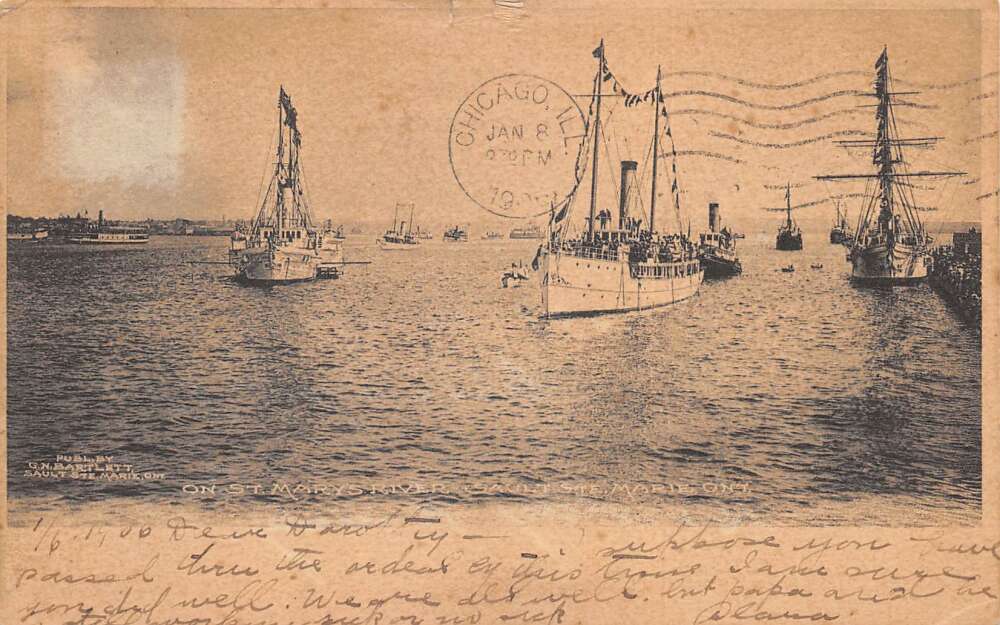 CHICAGO, ILL.
JAN 8
PM
PUBL. BY
G.N. BARTLETT,
SAULT STE. MARIE, ONT.
ON ST. MARYS RIVER, SAULT STE. MARIE, ONT.
1/6-1906 Dear Dorothy - I suppose you have
passed thru the ordeal by this time I am sure
you did well. We are all well. but papa and
still working sick or no sick. Clara.